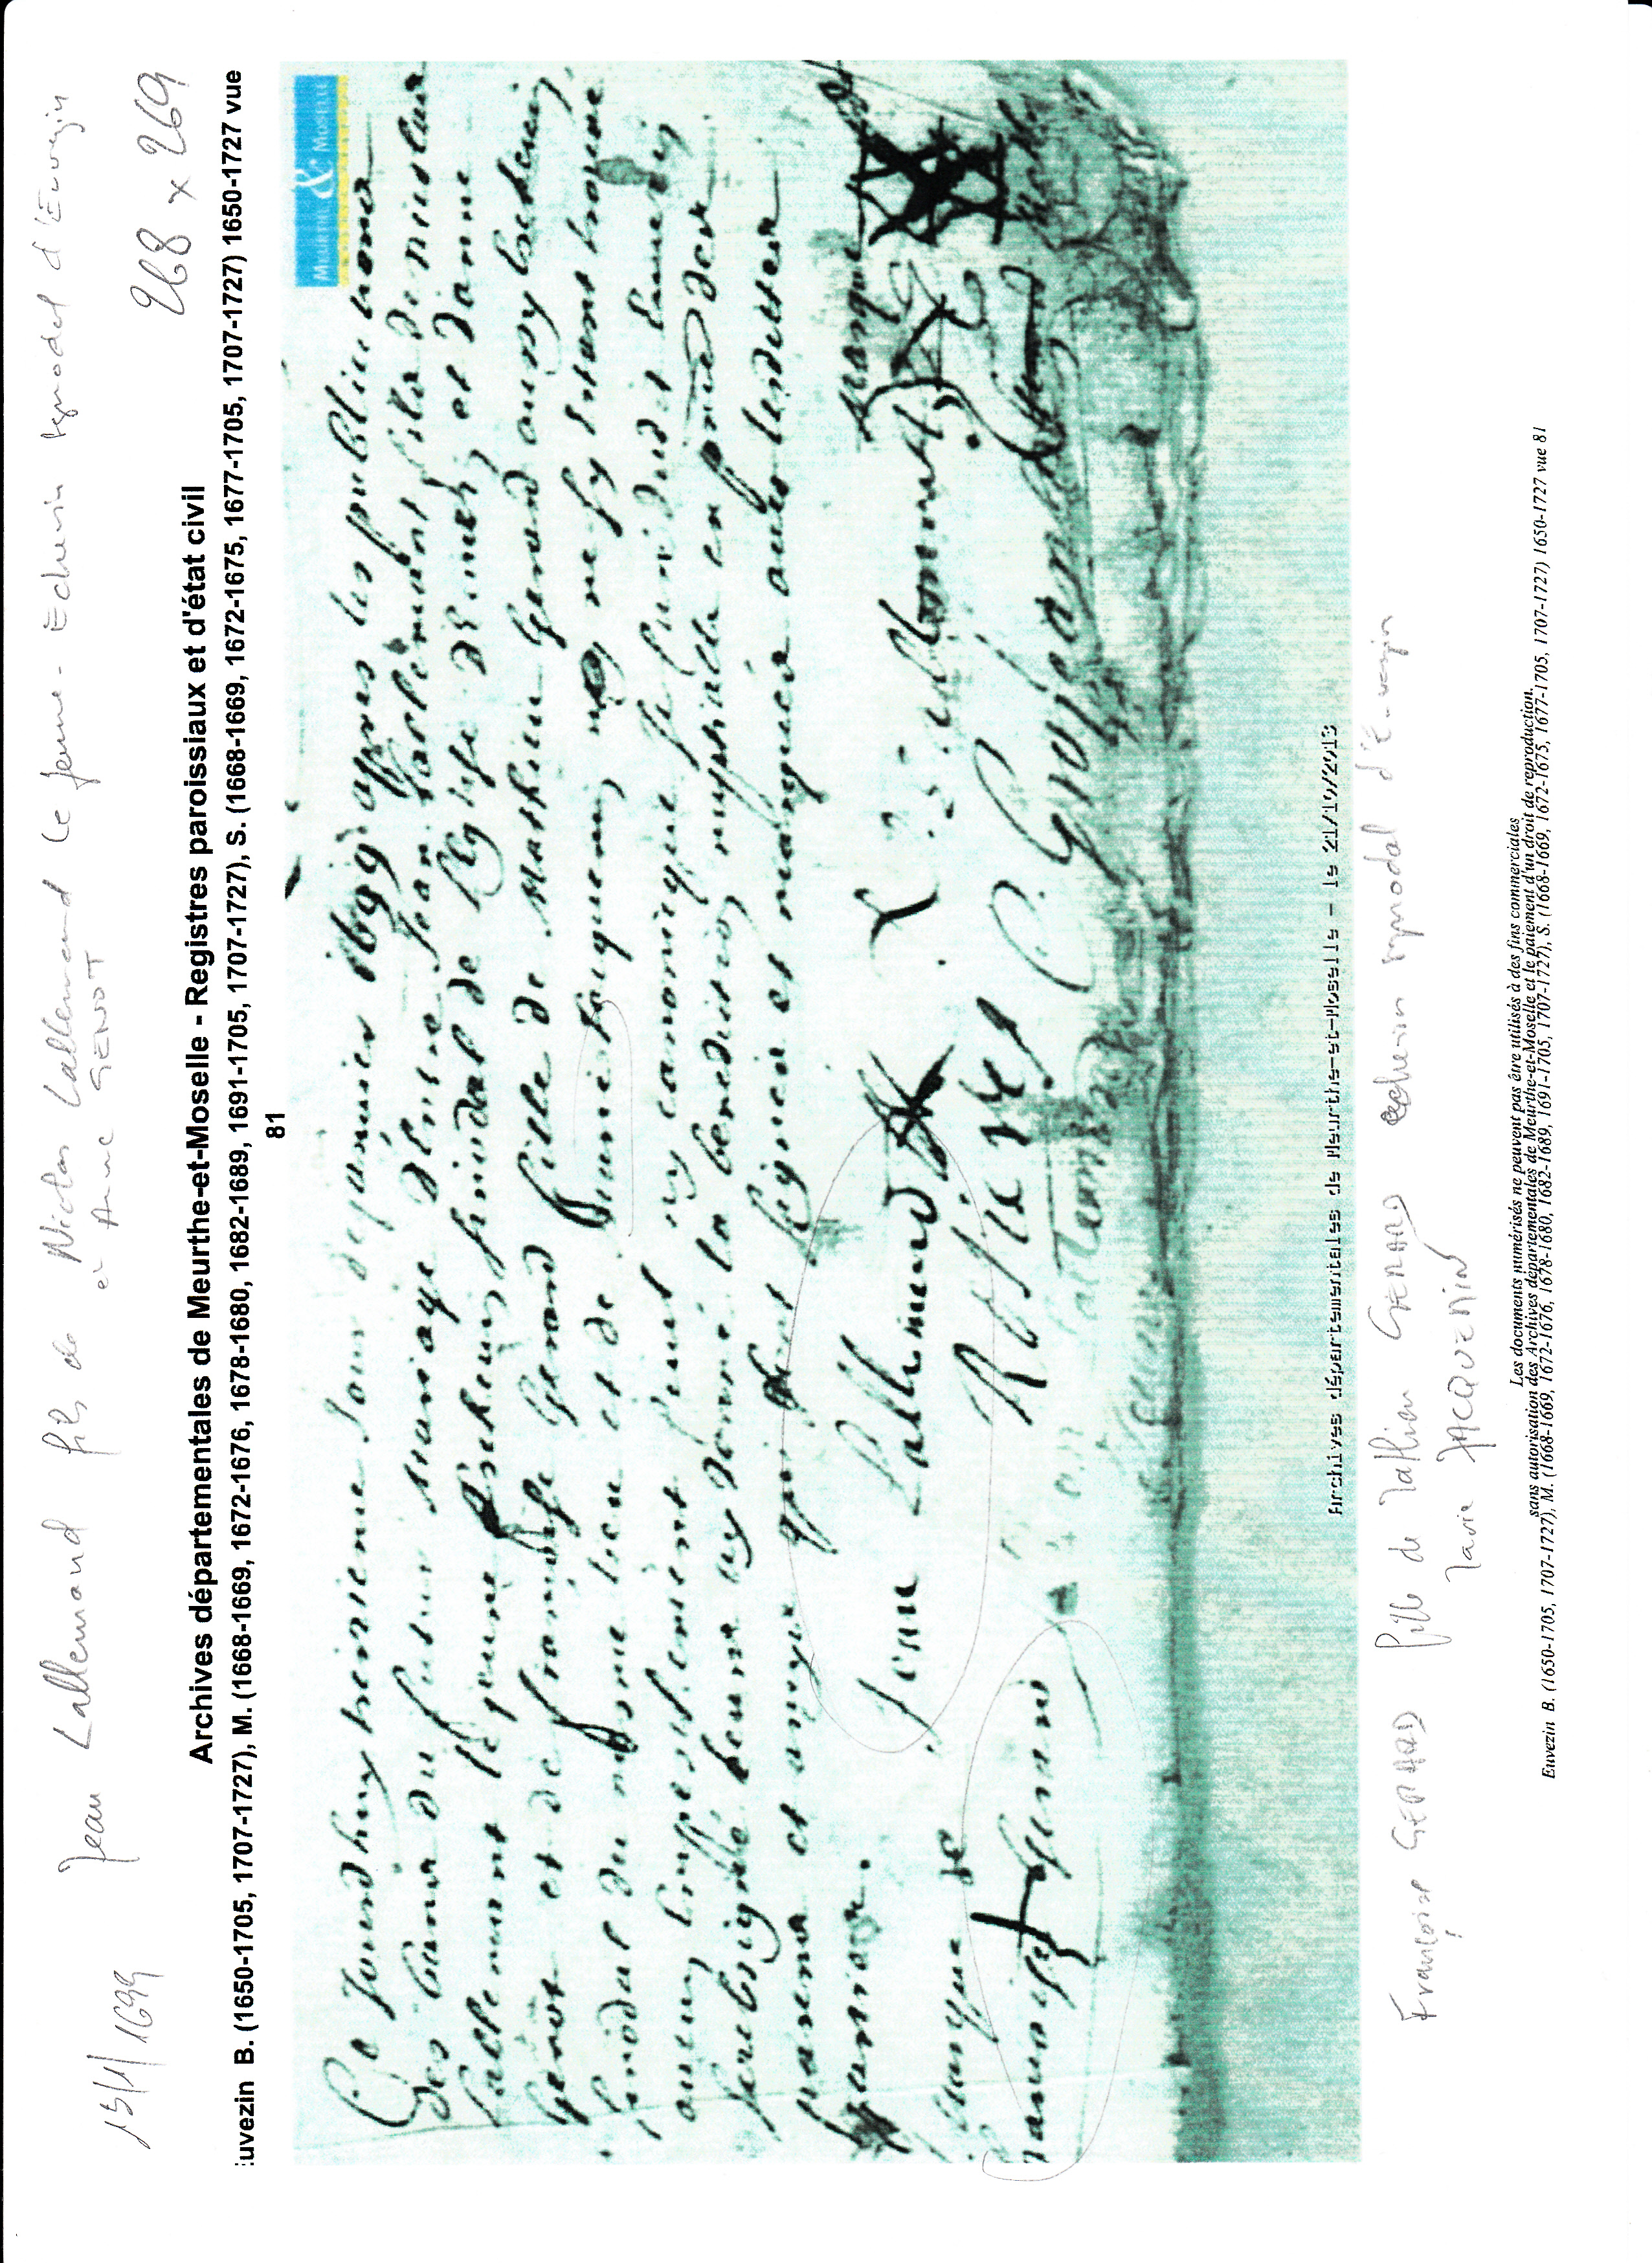 15/1/1699 Jean Lallemand fils de Nicolas Lallemand le jeune - Echevin synodal d'Euvezin
et Anne GENOT
268 x 269
Archives départementales de Meurthe-et-Moselle - Registres paroissiaux et d'état civil
uvezin B. (1650-1705, 1707-1727), M. (1668-1669, 1672-1676, 1678-1680, 1682-1689, 1691-1705, 1707-1727), S. (1668-1669, 1672-1675, 1677-1705, 1707-1727) 1650-1727 vue
81
MEURTHE & MOSELLE
Ce Jourdhuy treizieme Jour de janvier 1699 apres les publica tions
des bans du futur Mariage dentre Jean Lallemant fils de nicolas
Lallemant le jeune Eschevin sinodal de leglise et danne
Genot et de francoise Gerard fille de Mathieu Gerard aussy Eschevin
sinodal du mesme lieu et de Marie Jaquemin ne sy estant trouve
aucun empeschement ny canonique Je
soubsigné leur ay donné la benediction nuptiale en presence des
parens et amys qui ont signes et marques avec lesdittes
parties.
Jean Lallemand C. Lallemant marque
marque de
francoise Gerard
Archives départementales de Meurthe-et-Moselle - le 21/10/2013
Françoise GERARD fille de Mathieu GERARD echevin synodal d'Euvezin
Marie JACQUEMIN
Les documents numérisés ne peuvent pas être utilisés à des fins commerciales
sans autorisation des Archives départementales de Meurthe-et-Moselle et le paiement d'un droit de reproduction.
Euvezin B. (1650-1705, 1707-1727), M. (1668-1669, 1672-1676, 1678-1680, 1682-1689, 1691-1705, 1707-1727), S. (1668-1669, 1672-1675, 1677-1705, 1707-1727) 1650-1727 vue 81